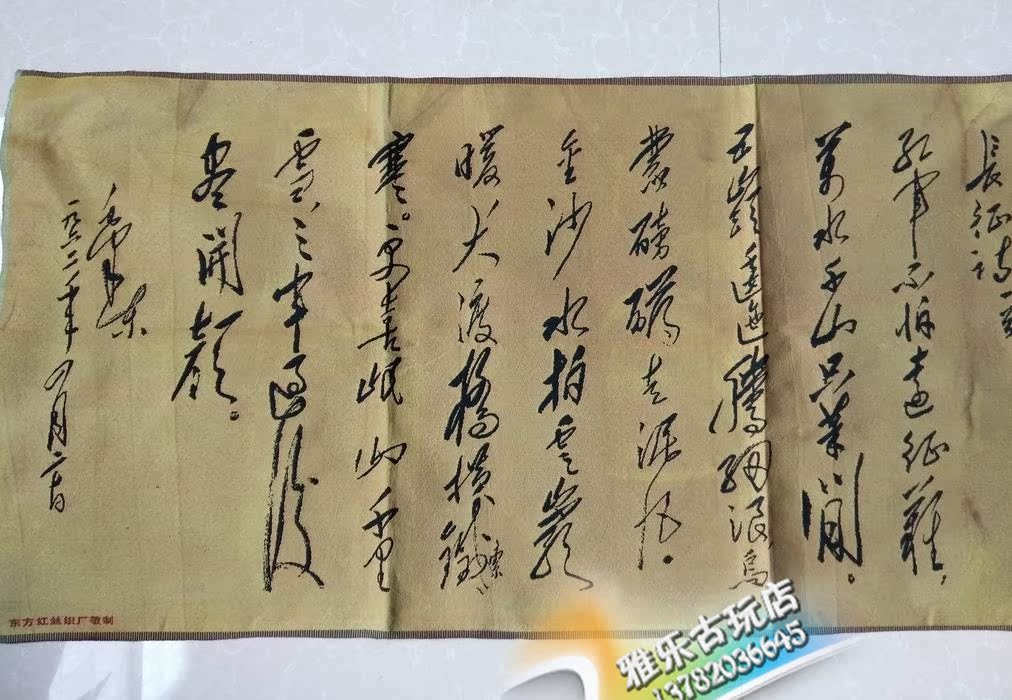 長征詩一首
紅軍不怕遠征難，
萬水千山只等閒。
五嶺逶迤騰細浪烏
蒙磅礴走泥丸。
金沙水拍雲崖
暖大渡橋橫鐵索
寒。更喜岷山千里
雪，三軍過後
盡開顏。
毛澤東
一九六二年四月二十日
东方红丝织厂敬制
雅乐古玩店
13782036645